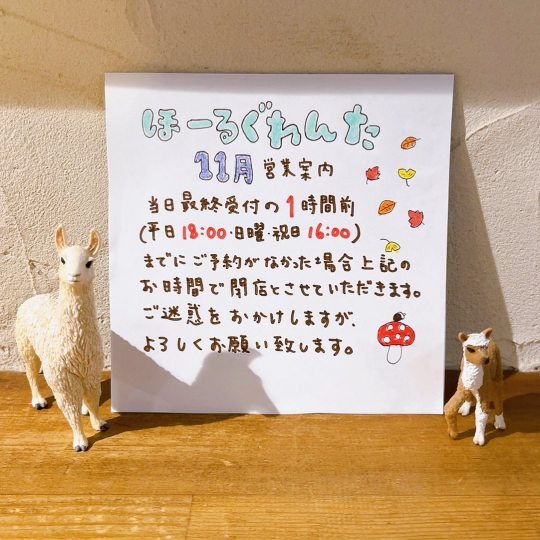 ほーるぐれんた
11月 営業案内
当日最終受付の1時間前
(平日18:00・日曜・祝日16:00)
までにご予約がなかった場合上記の
お時間で閉店とさせていただきます。
ご迷惑をおかけしますが、
よろしくお願い致します。